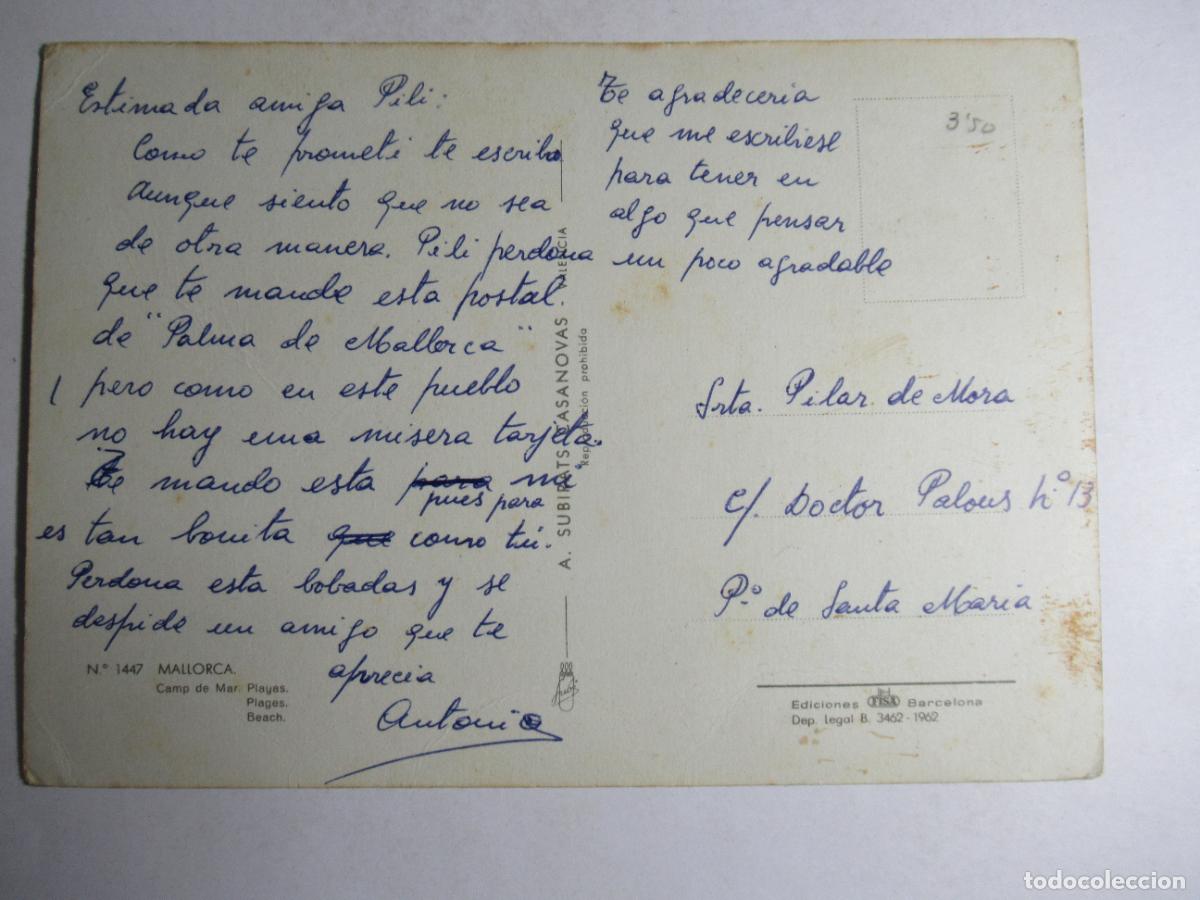 Estimada amiga Pili:
Como te prometi te escribo
aunque siento que no sea
de otra manera. Pili perdona
que te mande esta postal.
de "Palma de Mallorca"
pero como en este pueblo
no hay una misera tarjeta.
Te mando esta para
pues para
es tan bonita que como tú.
Perdona esta bobadas y se
despide un amigo que te
aprecia
Antonio
Te agradeceria
que me escribiese
para tener en
algo que pensar
un poco agradable
3'50
Srta. Pilar de Mora
c/. Doctor Palous Nº 13
Pº de Santa Maria
N.º 1447 MALLORCA.
Camp de Mar. Playas.
Plages.
Beach.
A. SUBIRATS CASANOVAS VALENCIA
Reproducción prohibida
Ediciones FISA Barcelona
Dep. Legal B. 3462-1962
todocoleccion